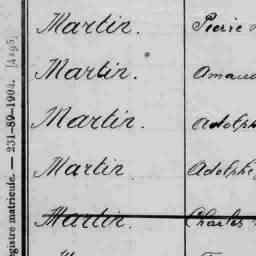 Martin. Pierre
Martin.
Martin. Adolph
Martin Adolphe
Martin. Charles
egistre matricule. — 231-89-1904. [4195]